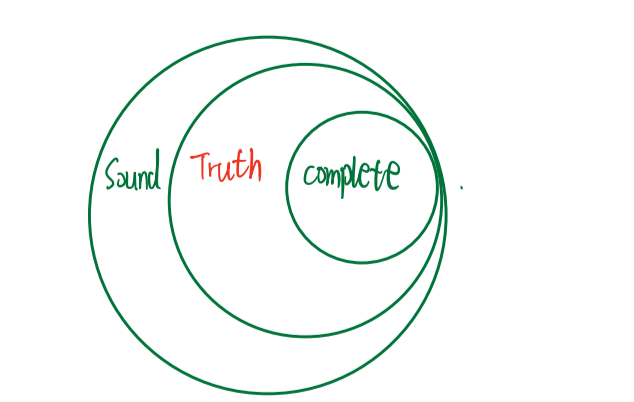 Sound Truth complete